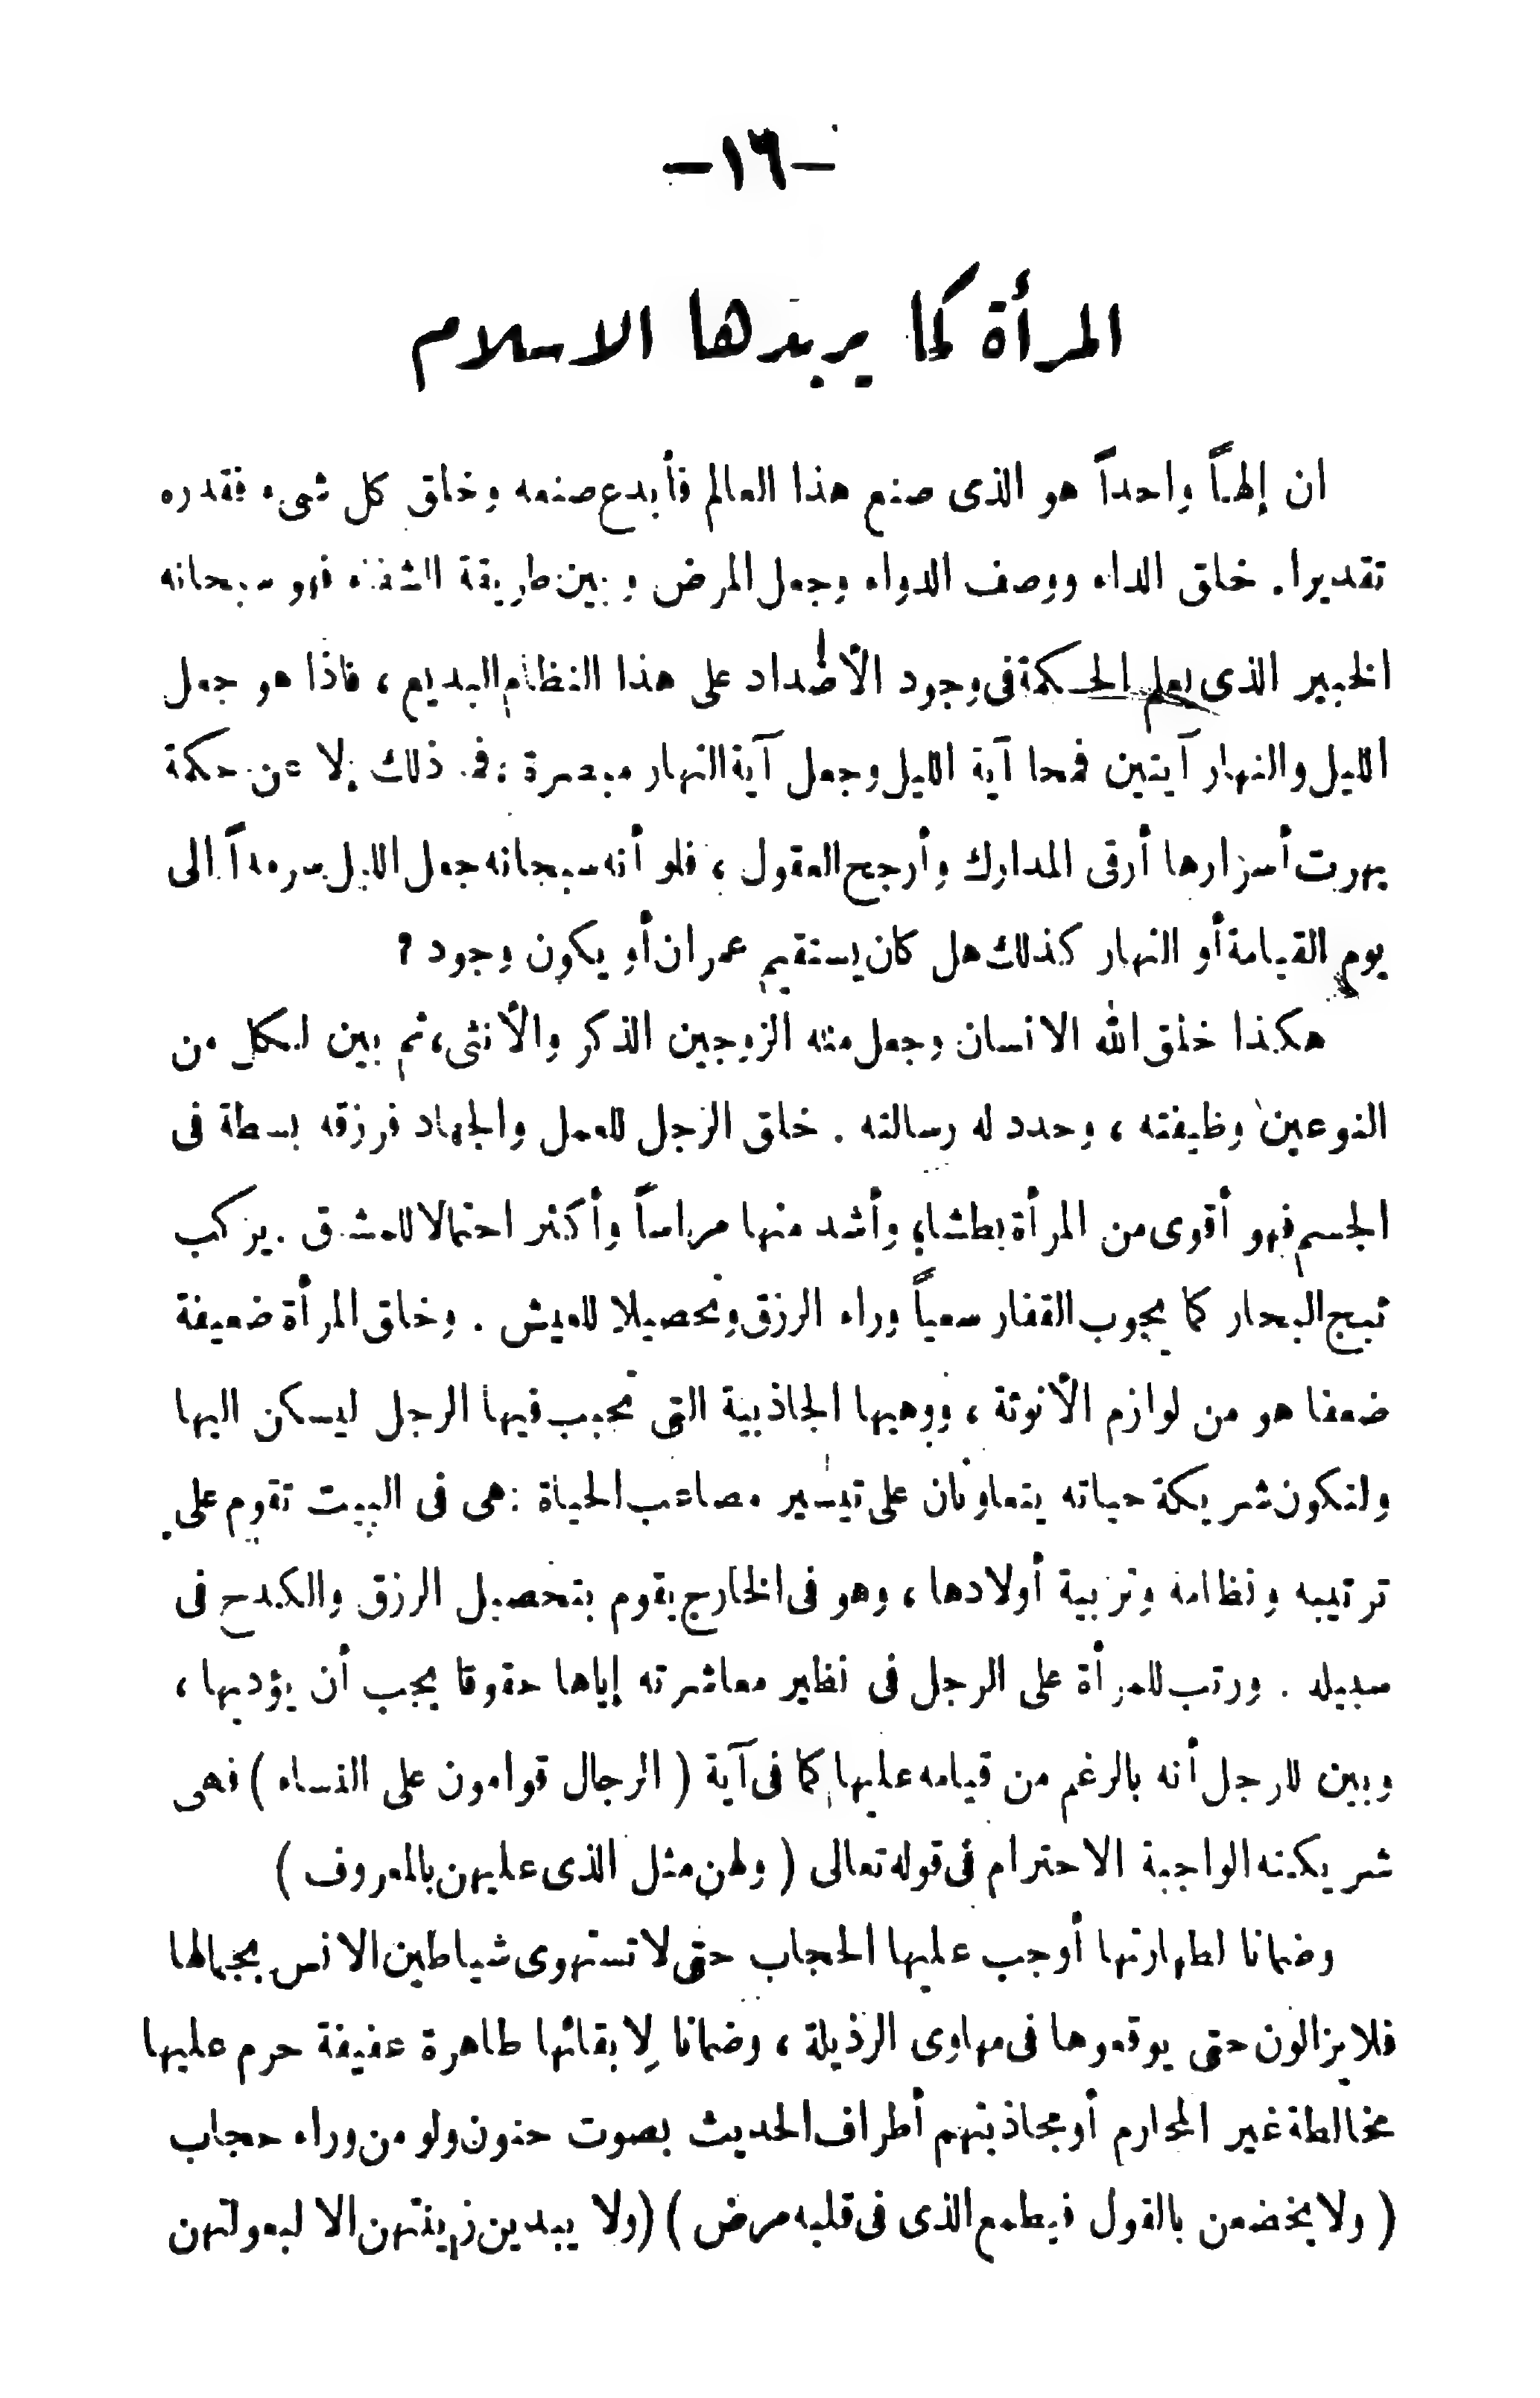 –١٦–
المرأة كما يريدها الاسلام
ان إلهاً واحداً هو الذى صنع هذا العالم فأبدع صنعه وخلق كل شىء فقدره
تقديرا. خلق الداء ووصف الدواء وجعل المرض وبين طريقة الشفاء فهو سبحانه
الخبير الذى يعلم الحكمة فى وجود الأضداد على هذا النظام البديع ، فاذا هو جعل
الليل والنهار آيتين فمحا آية الليل وجعل آية النهار مبصرة : فما ذلك إلا عن حكمة
بهرت أسرارها أرقى المدارك وأرجح العقول ، فلو أنه سبحانه جعل الليل سرمداً الى
يوم القيامة أو النهار كذلك هل كان يستقيم عمران أو يكون وجود ؟
هكذا خلق الله الانسان وجعل منه الزوجين الذكر والأنثى ، ثم بين لكل من
النوعين وظيفته ، وحدد له رسالته . خلق الرجل للعمل والجهاد فرزقه بسطة فى
الجسم فهو أقوى من المرأة بطشا، وأشد منها مراساً وأكثر احتمالا للمشاق . يركب
ثبج البحار كما يجوب القفار سعياً وراء الرزق وتحصيلا للعيش . وخلق المرأة ضعيفة
ضعفا هو من لوازم الأنوثة ، ووهبها الجاذبية التى تحبب فيها الرجل ليسكن اليها
ولتكون شريكة حياته يتعاونان على تيسير مصاعب الحياة : هى فى البيت تقوم على
ترتيبه ونظامه وتربية أولادها ، وهو فى الخارج يقوم بتحصيل الرزق والكدح فى
سبيله . ورتب للمرأة على الرجل فى نظير معاشرته إياها حقوقا يجب أن يؤديها ،
وبين للرجل أنه بالرغم من قيامه عليها كما فى آية ( الرجال قوامون على النساء ) فهى
شريكته الواجبة الاحترام فى قوله تعالى ( ولهن مثل الذى عليهن بالمعروف )
وضمانا لطهارتها أوجب عليها الحجاب حتى لا تستهوى شياطين الانس بجمالها
فلا يزالون حتى يوقعوها فى مهاوى الرذيلة ، وضمانا لإبقائها طاهرة عفيفة حرم عليها
مخالطة غير المحارم أو مجاذبتهم أطراف الحديث بصوت حنون ولو من وراء حجاب
( ولا يخضعن بالقول فيطمع الذى فى قلبه مرض ) (ولا يبدين زينتهن الا لبعولتهن